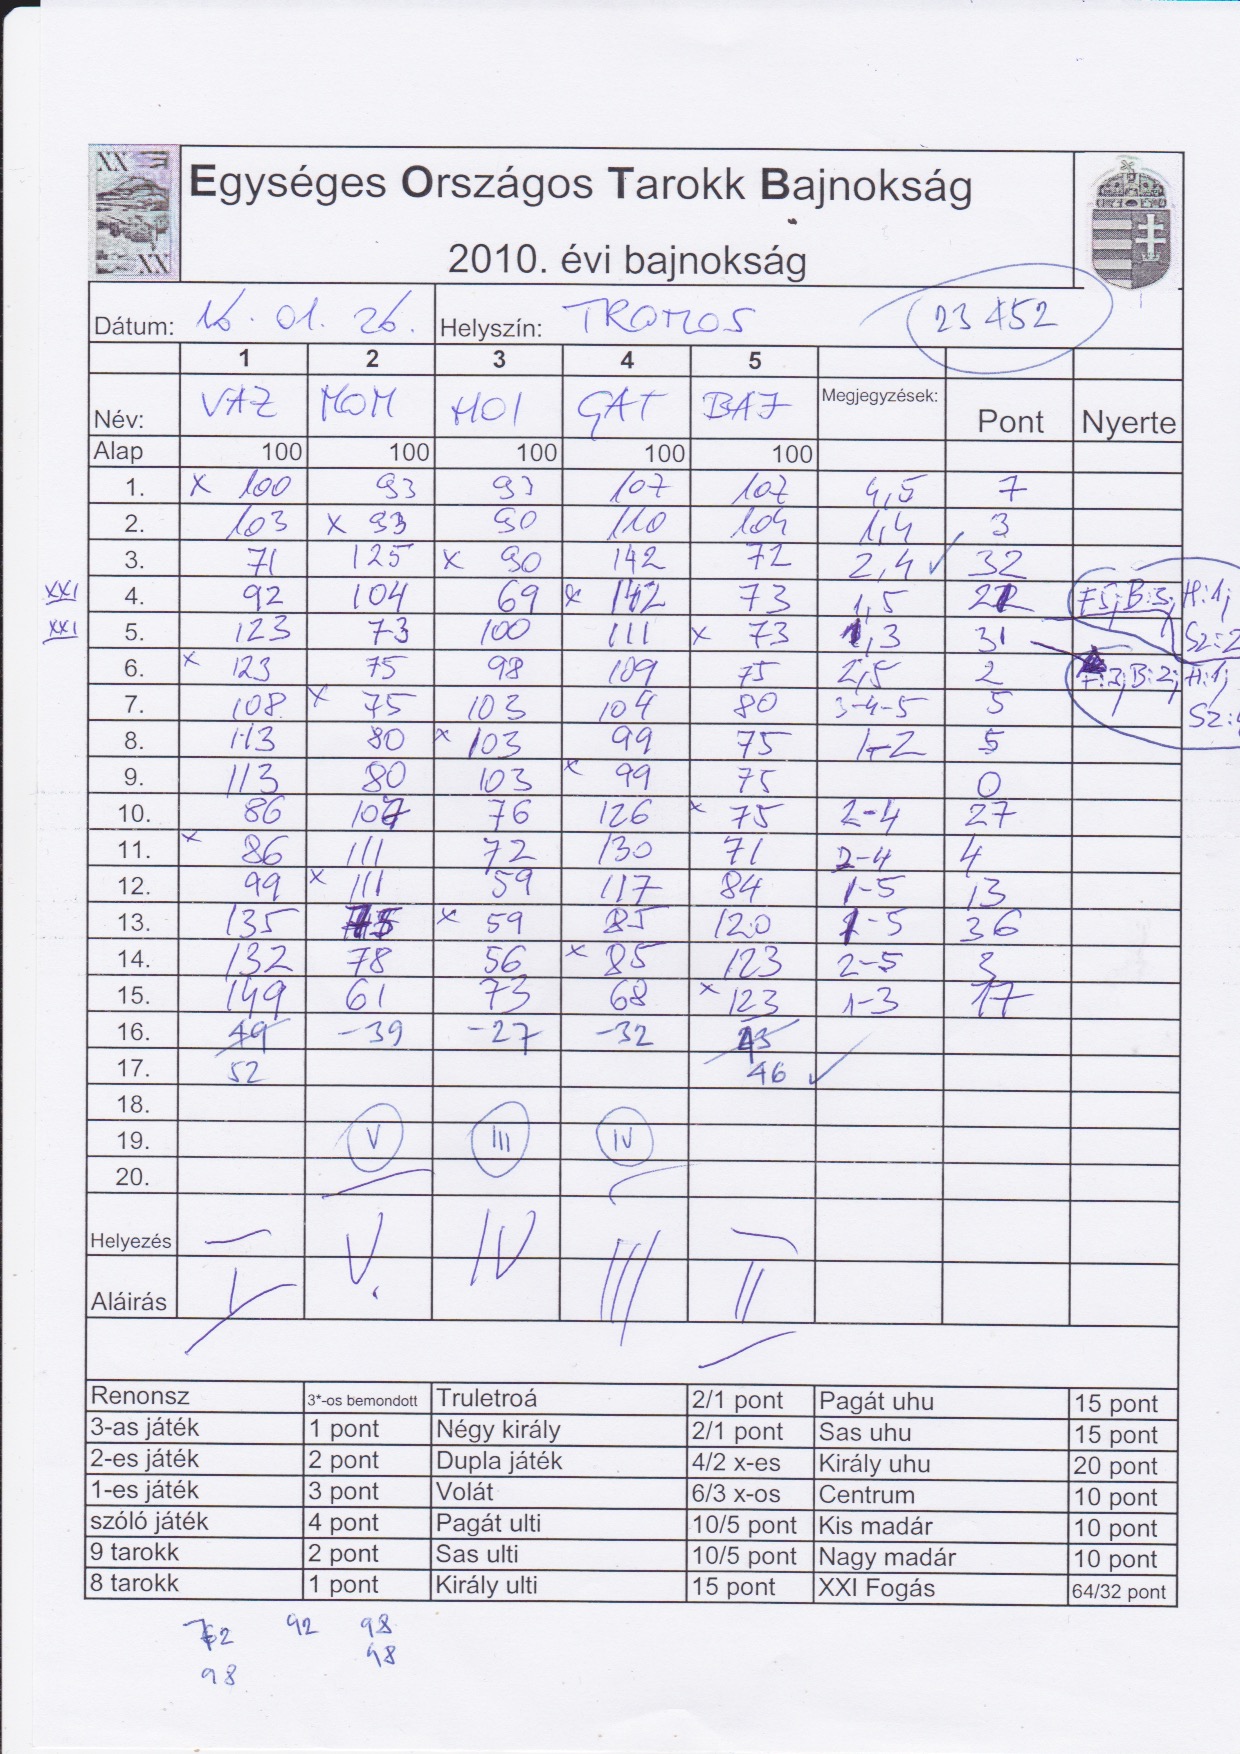 XX
XX
Egységes Országos Tarokk Bajnokság
2010. évi bajnokság
Dátum: 16. 01. 26. Helyszín: TROMOS 23 452
1 2 3 4 5
Név: VAZ MOM HOI GAT BAJ Megjegyzések: Pont Nyerte
Alap 100 100 100 100 100
1. x 100 93 93 107 107 4,5 7
2. 103 x 93 90 110 104 1,4 3
3. 71 125 x 90 142 72 2,4 ✓ 32
XXI 4. 92 104 69 x 142 73 1,5 21 F5; B:3; H:1;
XXI 5. 123 73 100 111 x 73 1,3 31 Sz=2
6. x 123 75 98 109 75 2,5 2 F:3; B:2; H:1;
7. 108 x 75 103 104 80 3-4-5 5 Sz:
8. 113 80 x 103 99 75 1-2 5
9. 113 80 103 x 99 75 0
10. 86 107 76 126 x 75 2-4 27
11. x 86 111 72 130 71 2-4 4
12. 99 x 111 59 117 84 1-5 13
13. 135 75 x 59 85 120 1-5 36
14. 132 78 56 x 85 123 2-5 3
15. 149 61 73 68 x 123 1-3 17
16. 49 -39 -27 -32
17. 52 46 ✓
18.
19. V III IV
20.
Helyezés I V. IV III II
Aláírás
Renonsz 3*-os bemondott Truletroá 2/1 pont Pagát uhu 15 pont
3-as játék 1 pont Négy király 2/1 pont Sas uhu 15 pont
2-es játék 2 pont Dupla játék 4/2 x-es Király uhu 20 pont
1-es játék 3 pont Volát 6/3 x-os Centrum 10 pont
szóló játék 4 pont Pagát ulti 10/5 pont Kis madár 10 pont
9 tarokk 2 pont Sas ulti 10/5 pont Nagy madár 10 pont
8 tarokk 1 pont Király ulti 15 pont XXI Fogás 64/32 pont
92 98
98 98